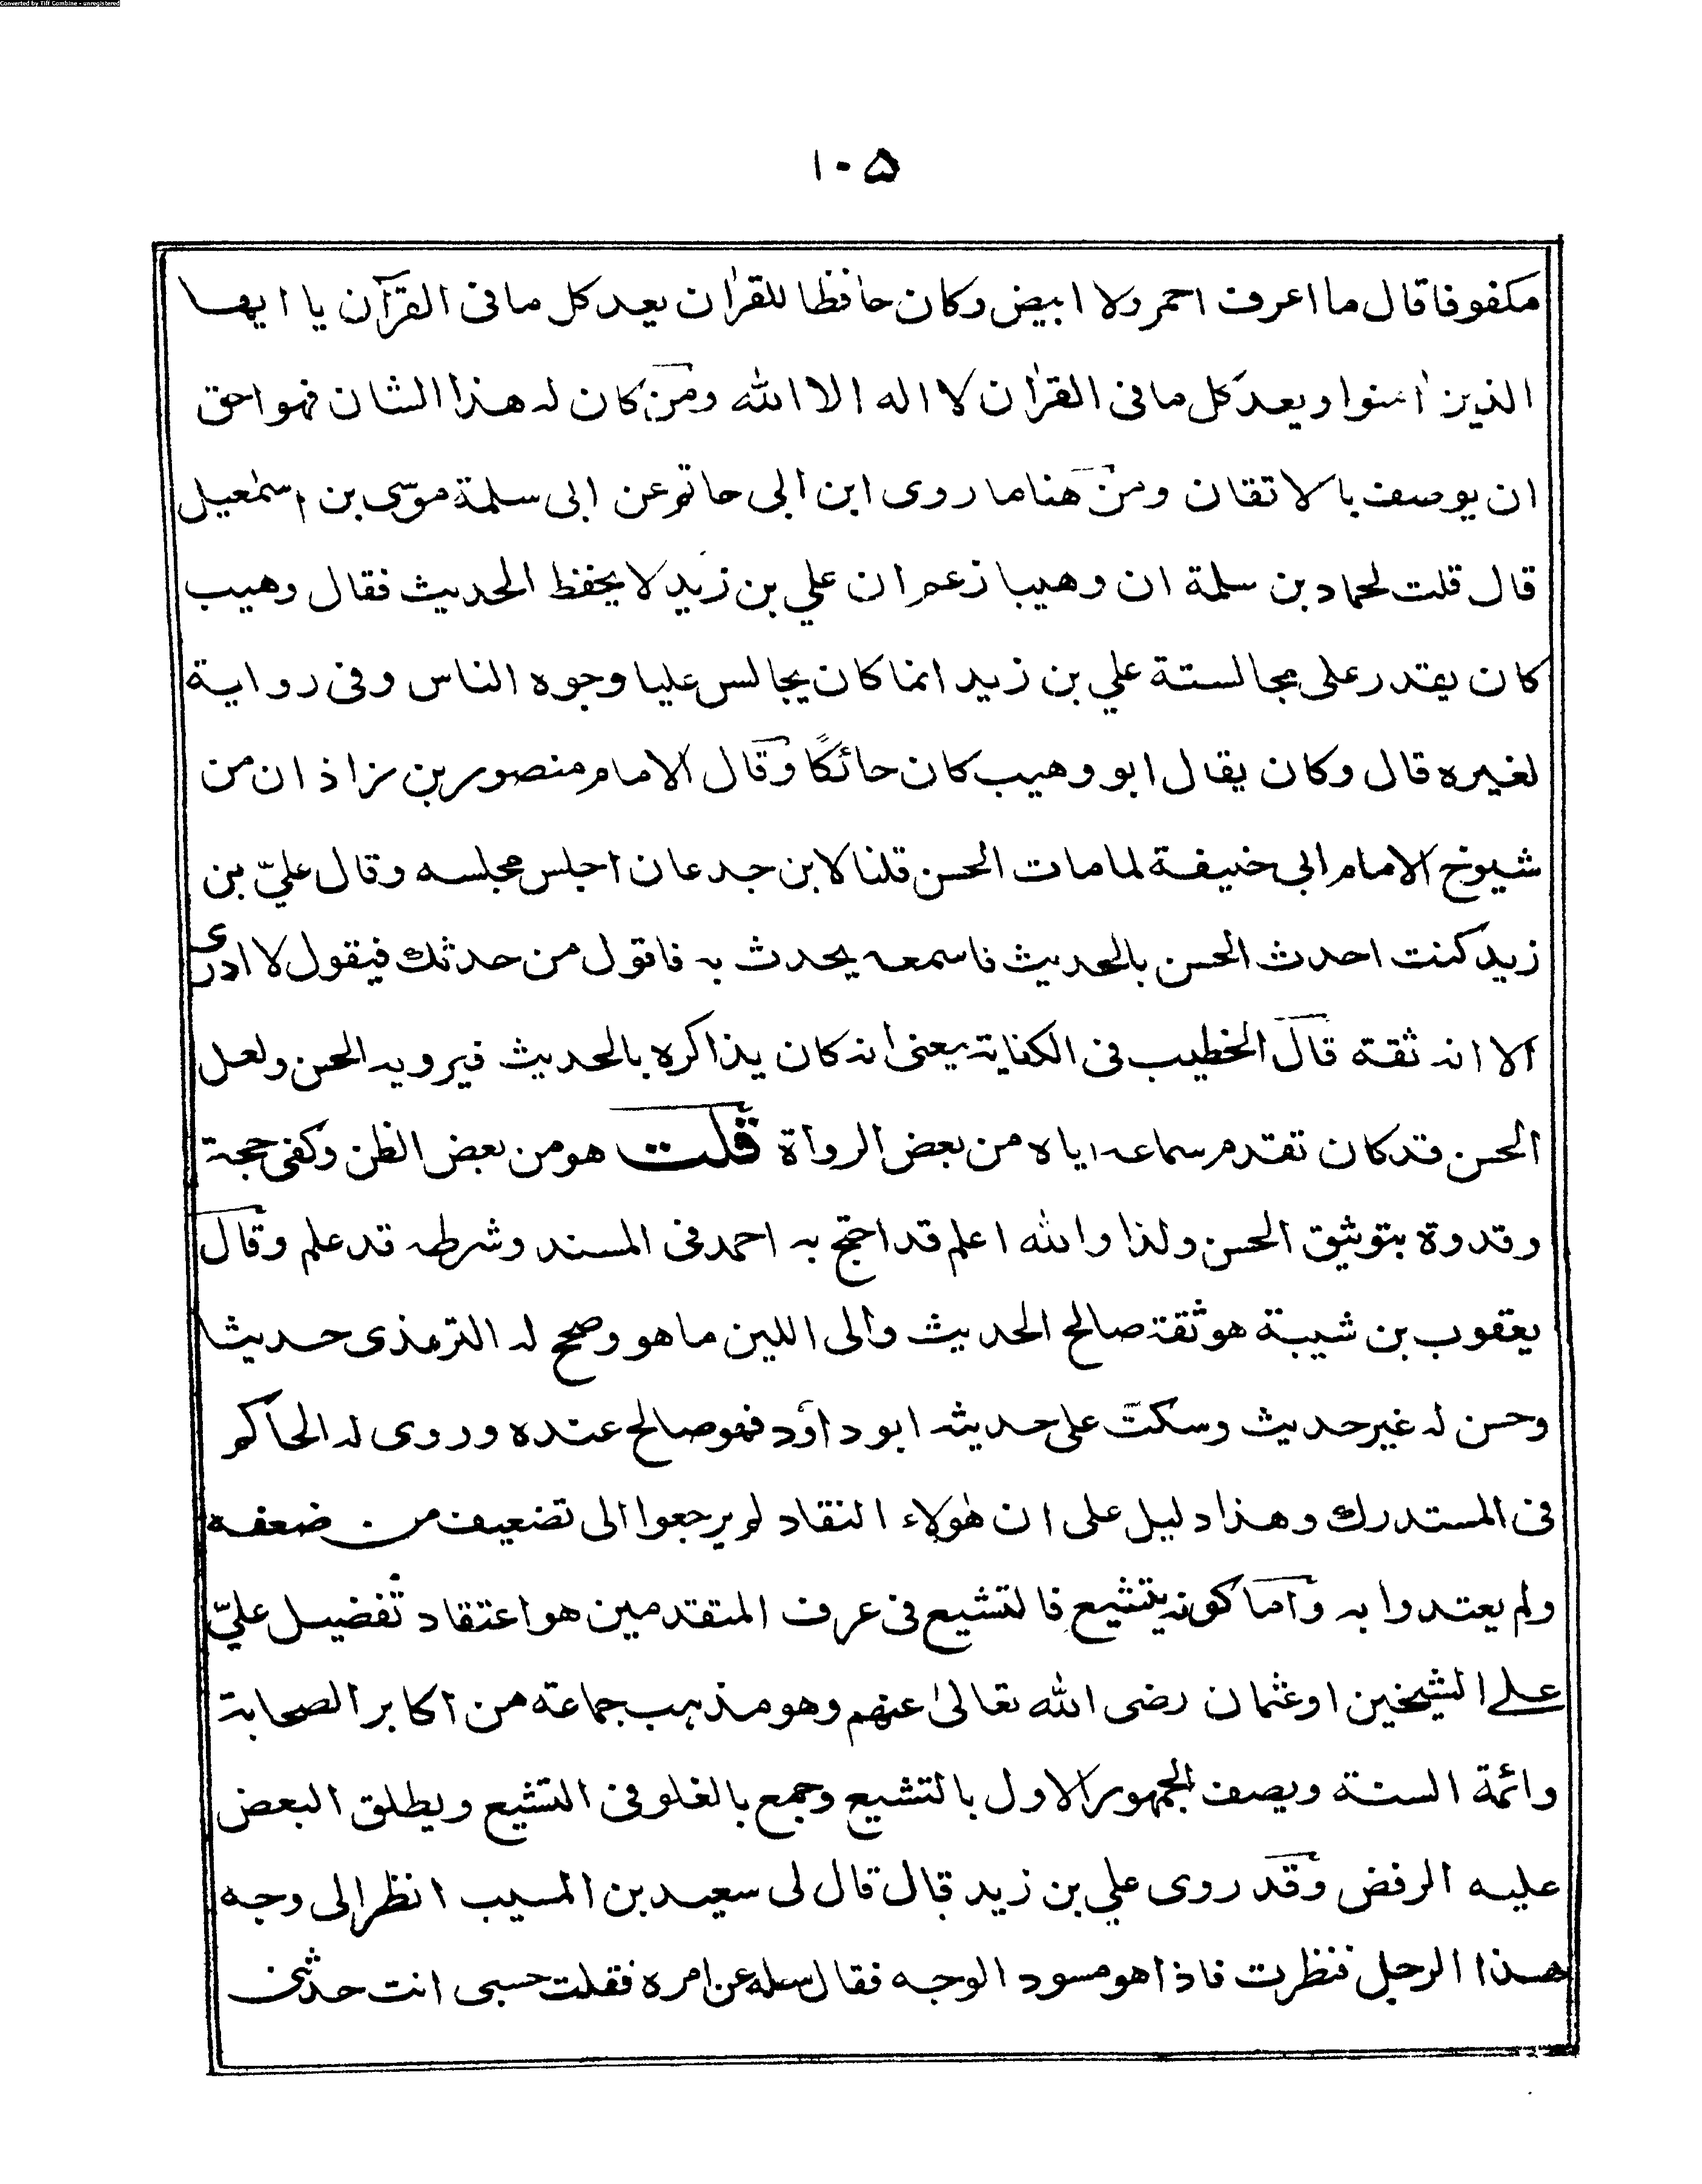 Converted by Tiff Combine - unregistered
١٠۵
مكفوفا قال ما اعرف احمر ولا ابيض وكان حافظا للقران يعد كل ما فى القرآن يا ايها
الذين اٰمنوا ويعد كل ما فى القرٰان لا اله الا الله ومن كان له هذا الشان فهو احق
ان يوصف بالاتقان ومن هنا ما روى ابن ابى حاتم عن ابى سلمة موسى بن اسمٰعيل
قال قلت لحماد بن سلمة ان وهيبا زعم ان علي بن زيد لا يحفظ الحديث فقال وهيب
كان يقدر على مجالسة علي بن زيد انما كان يجالس عليا وجوه الناس وفى رواية
لغيره قال وكان يقال ابو وهيب كان حائكًا وقال الامام منصور بن زاذان من
شيوخ الامام ابى حنيفة لما مات الحسن قلنا لابن جدعان اجلس مجلسه وقال عليّ بن
زيد كنت احدث الحسن بالحديث فاسمعه يحدث به فاقول من حدثك فيقول لا ادرى
الا انه ثقة قال الخطيب فى الكفاية يعنى انه كان يذاكره بالحديث فيرويه الحسن ولعل
الحسن قد كان تقدم سماعه اياه من بعض الرواة قلت هو من بعض الظن وكفى حجة
وقدوة بتوثيق الحسن ولذا والله اعلم قد احتج به احمد فى المسند وشرطه قد علم وقال
يعقوب بن شيبة هو ثقة صالح الحديث والى اللين ما هو وصحح له الترمذى حديثا
وحسن له غير حديث وسكت على حديثه ابو داؤد فهو صالح عنده وروى له الحاكم
فى المستدرك وهذا دليل على ان هٰولاء النقاد لم يرجعوا الى تضعيف من ضعفه
ولم يعتدوا به واما كونه يتشيع فالتشيع فى عرف المتقدمين هو اعتقاد تفضيل عليّ
على الشيخين او عثمان رضى الله تعالىٰ عنهم وهو مذهب جماعة من اكابر الصحابة
وائمة السنة ويصف الجمهور الاول بالتشيع وجمع بالغلو فى التشيع ويطلق البعض
عليه الرفض وقد روى علي بن زيد قال قال لى سعيد بن المسيب انظر الى وجه
هذا الرجل فنظرت فاذا هو مسود الوجه فقال سله عن امره فقلت حسبى انت حدثنى